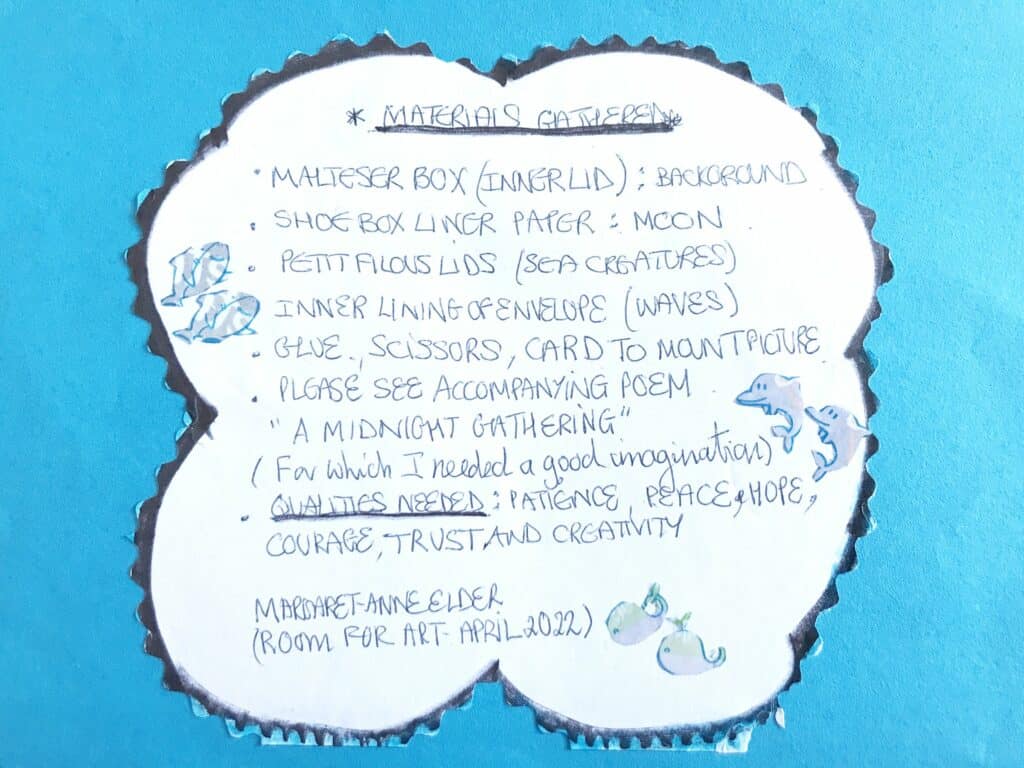 * MATERIALS GATHERED *
• MALTESER BOX (INNER LID) : BACKGROUND
• SHOE BOX LINER PAPER : MOON
• PETIT FILOUS LIDS (SEA CREATURES)
INNER LINING OF ENVELOPE (WAVES)
• GLUE, SCISSORS, CARD TO MOUNT PICTURE
• PLEASE SEE ACCOMPANYING POEM
"A MIDNIGHT GATHERING"
(For which I needed a good imagination)
• QUALITIES NEEDED : PATIENCE, PEACE, HOPE,
COURAGE, TRUST AND CREATIVITY
MARGARET-ANNE ELDER
(ROOM FOR ART - APRIL 2022)